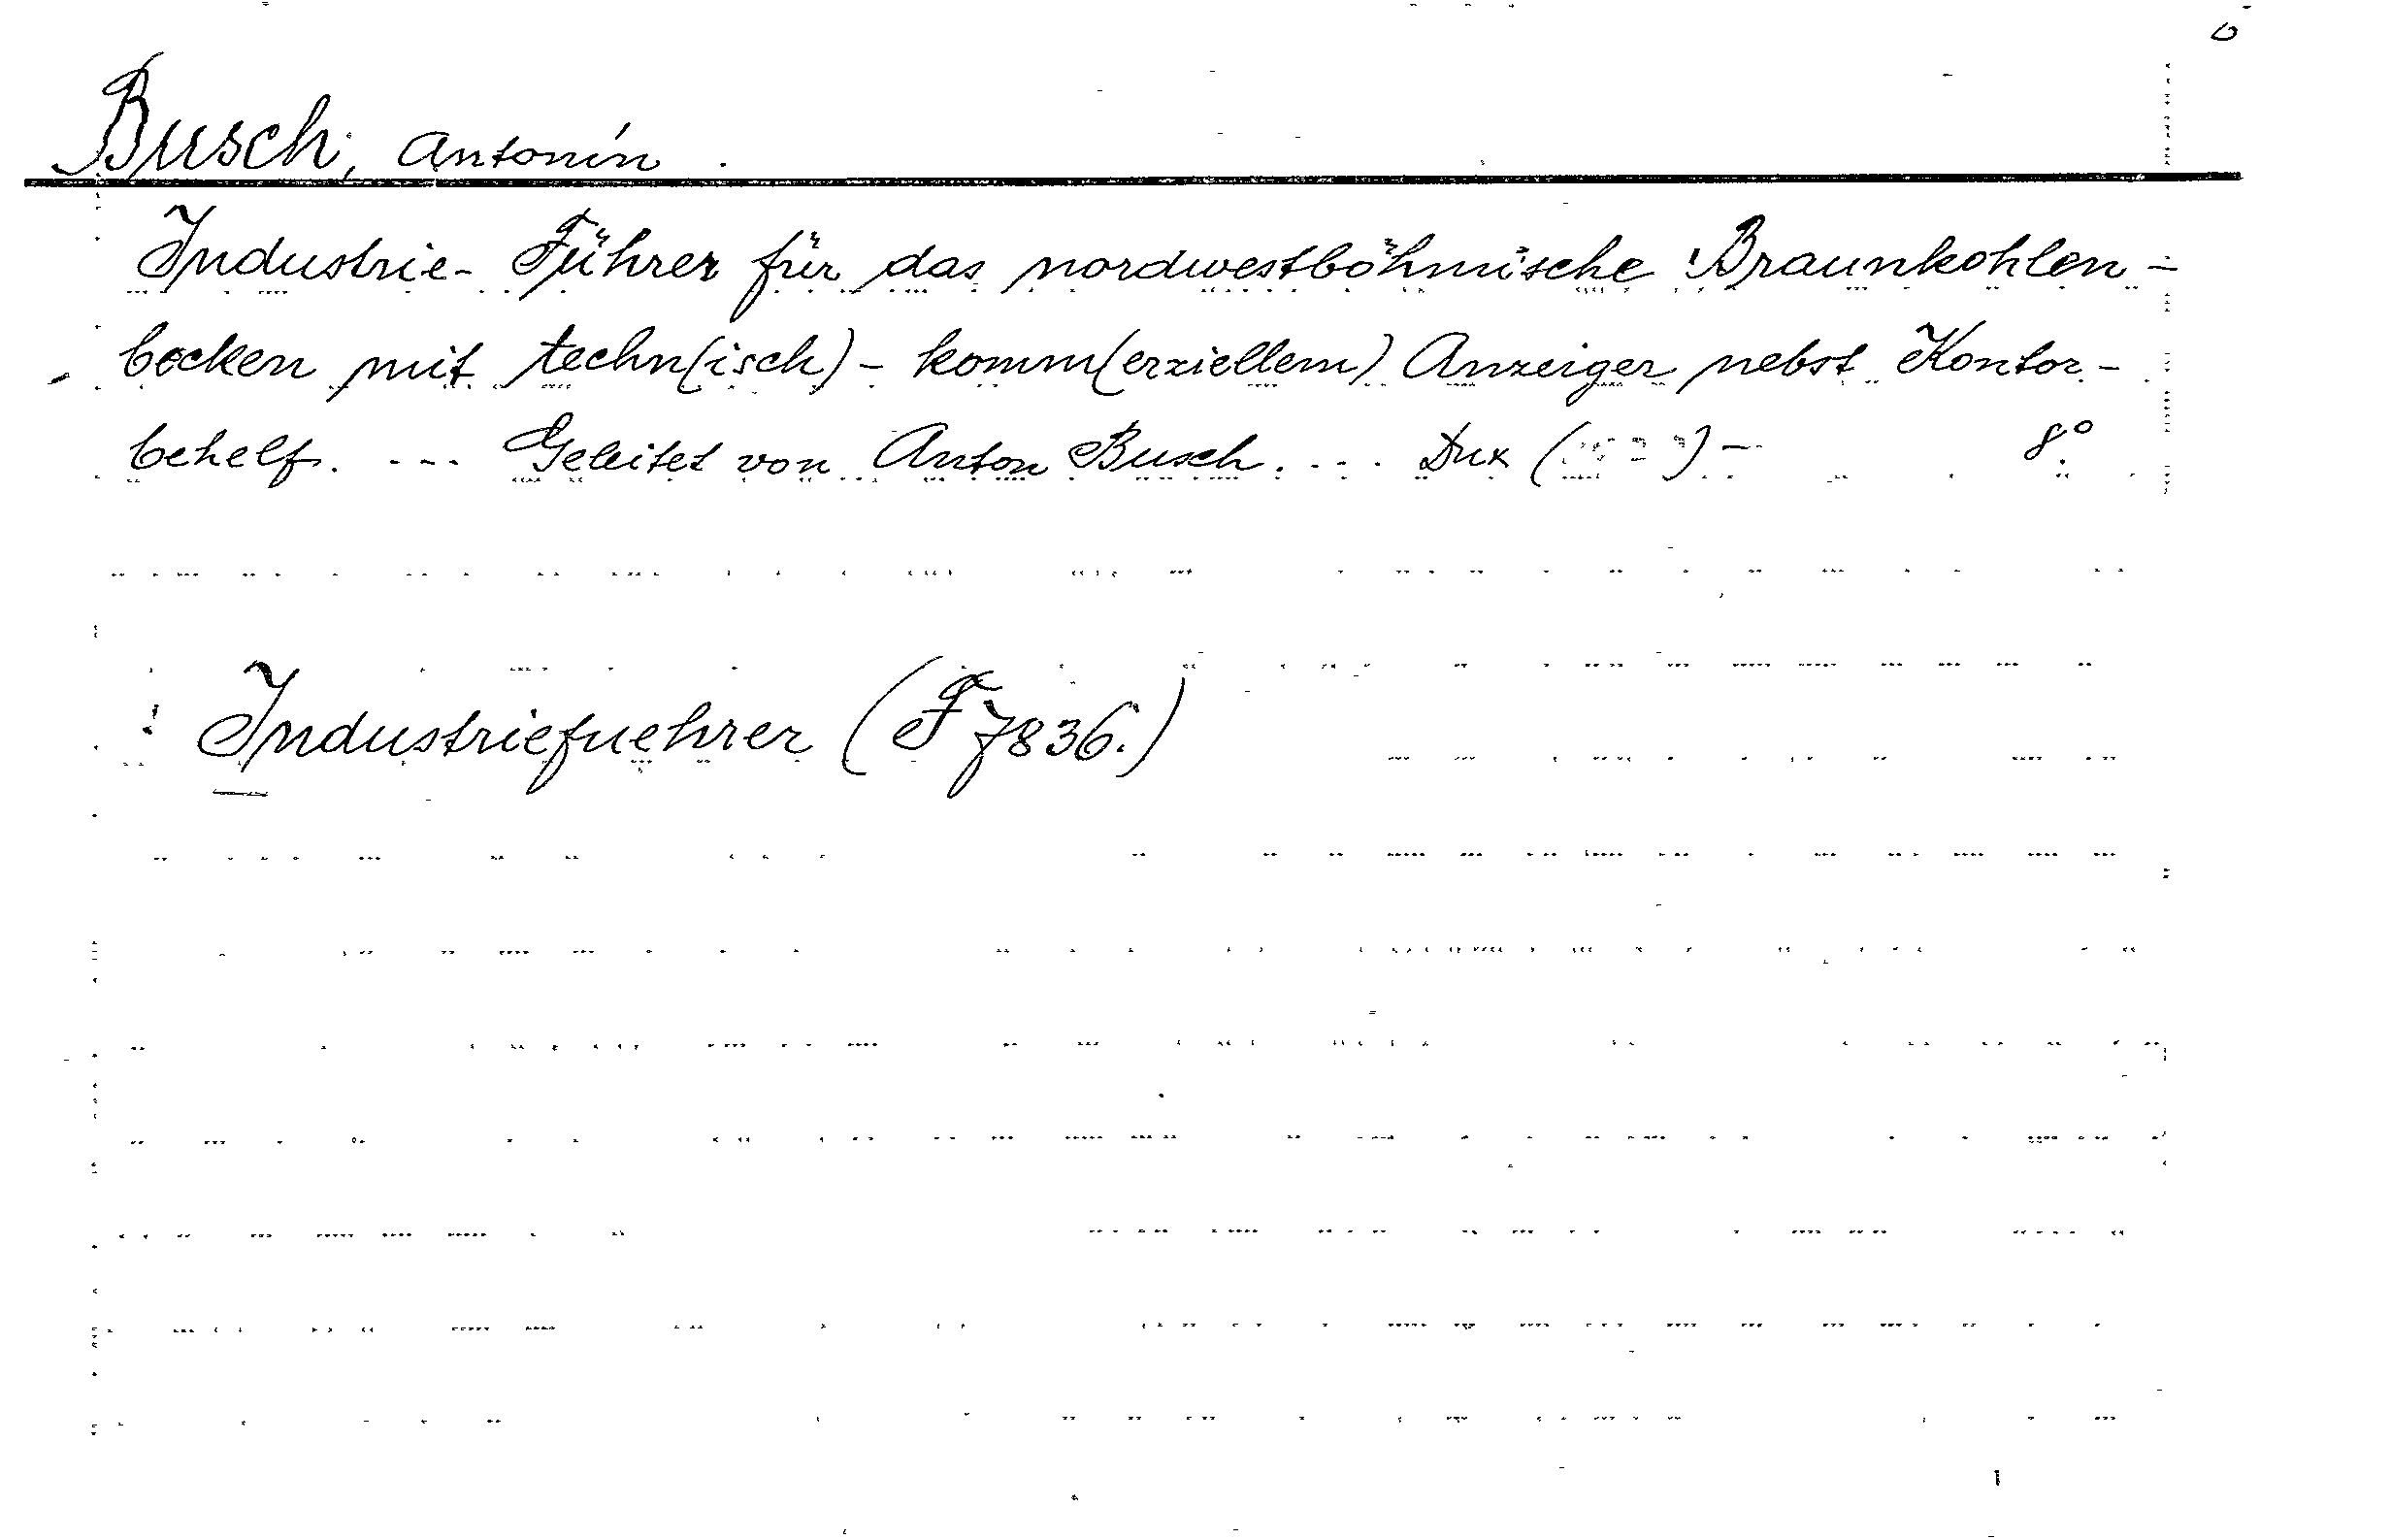 Busch, Antonín
Industrie-Führer für das nordwestböhmische Braunkohlen-
becken mit techn(isch)-komm(erziellem) Anzeiger nebst Kontor-
behelf. --- Geleitet von Anton Busch. ... Dux ( ) - 8°
! Industriefuehrer (F 7836.)